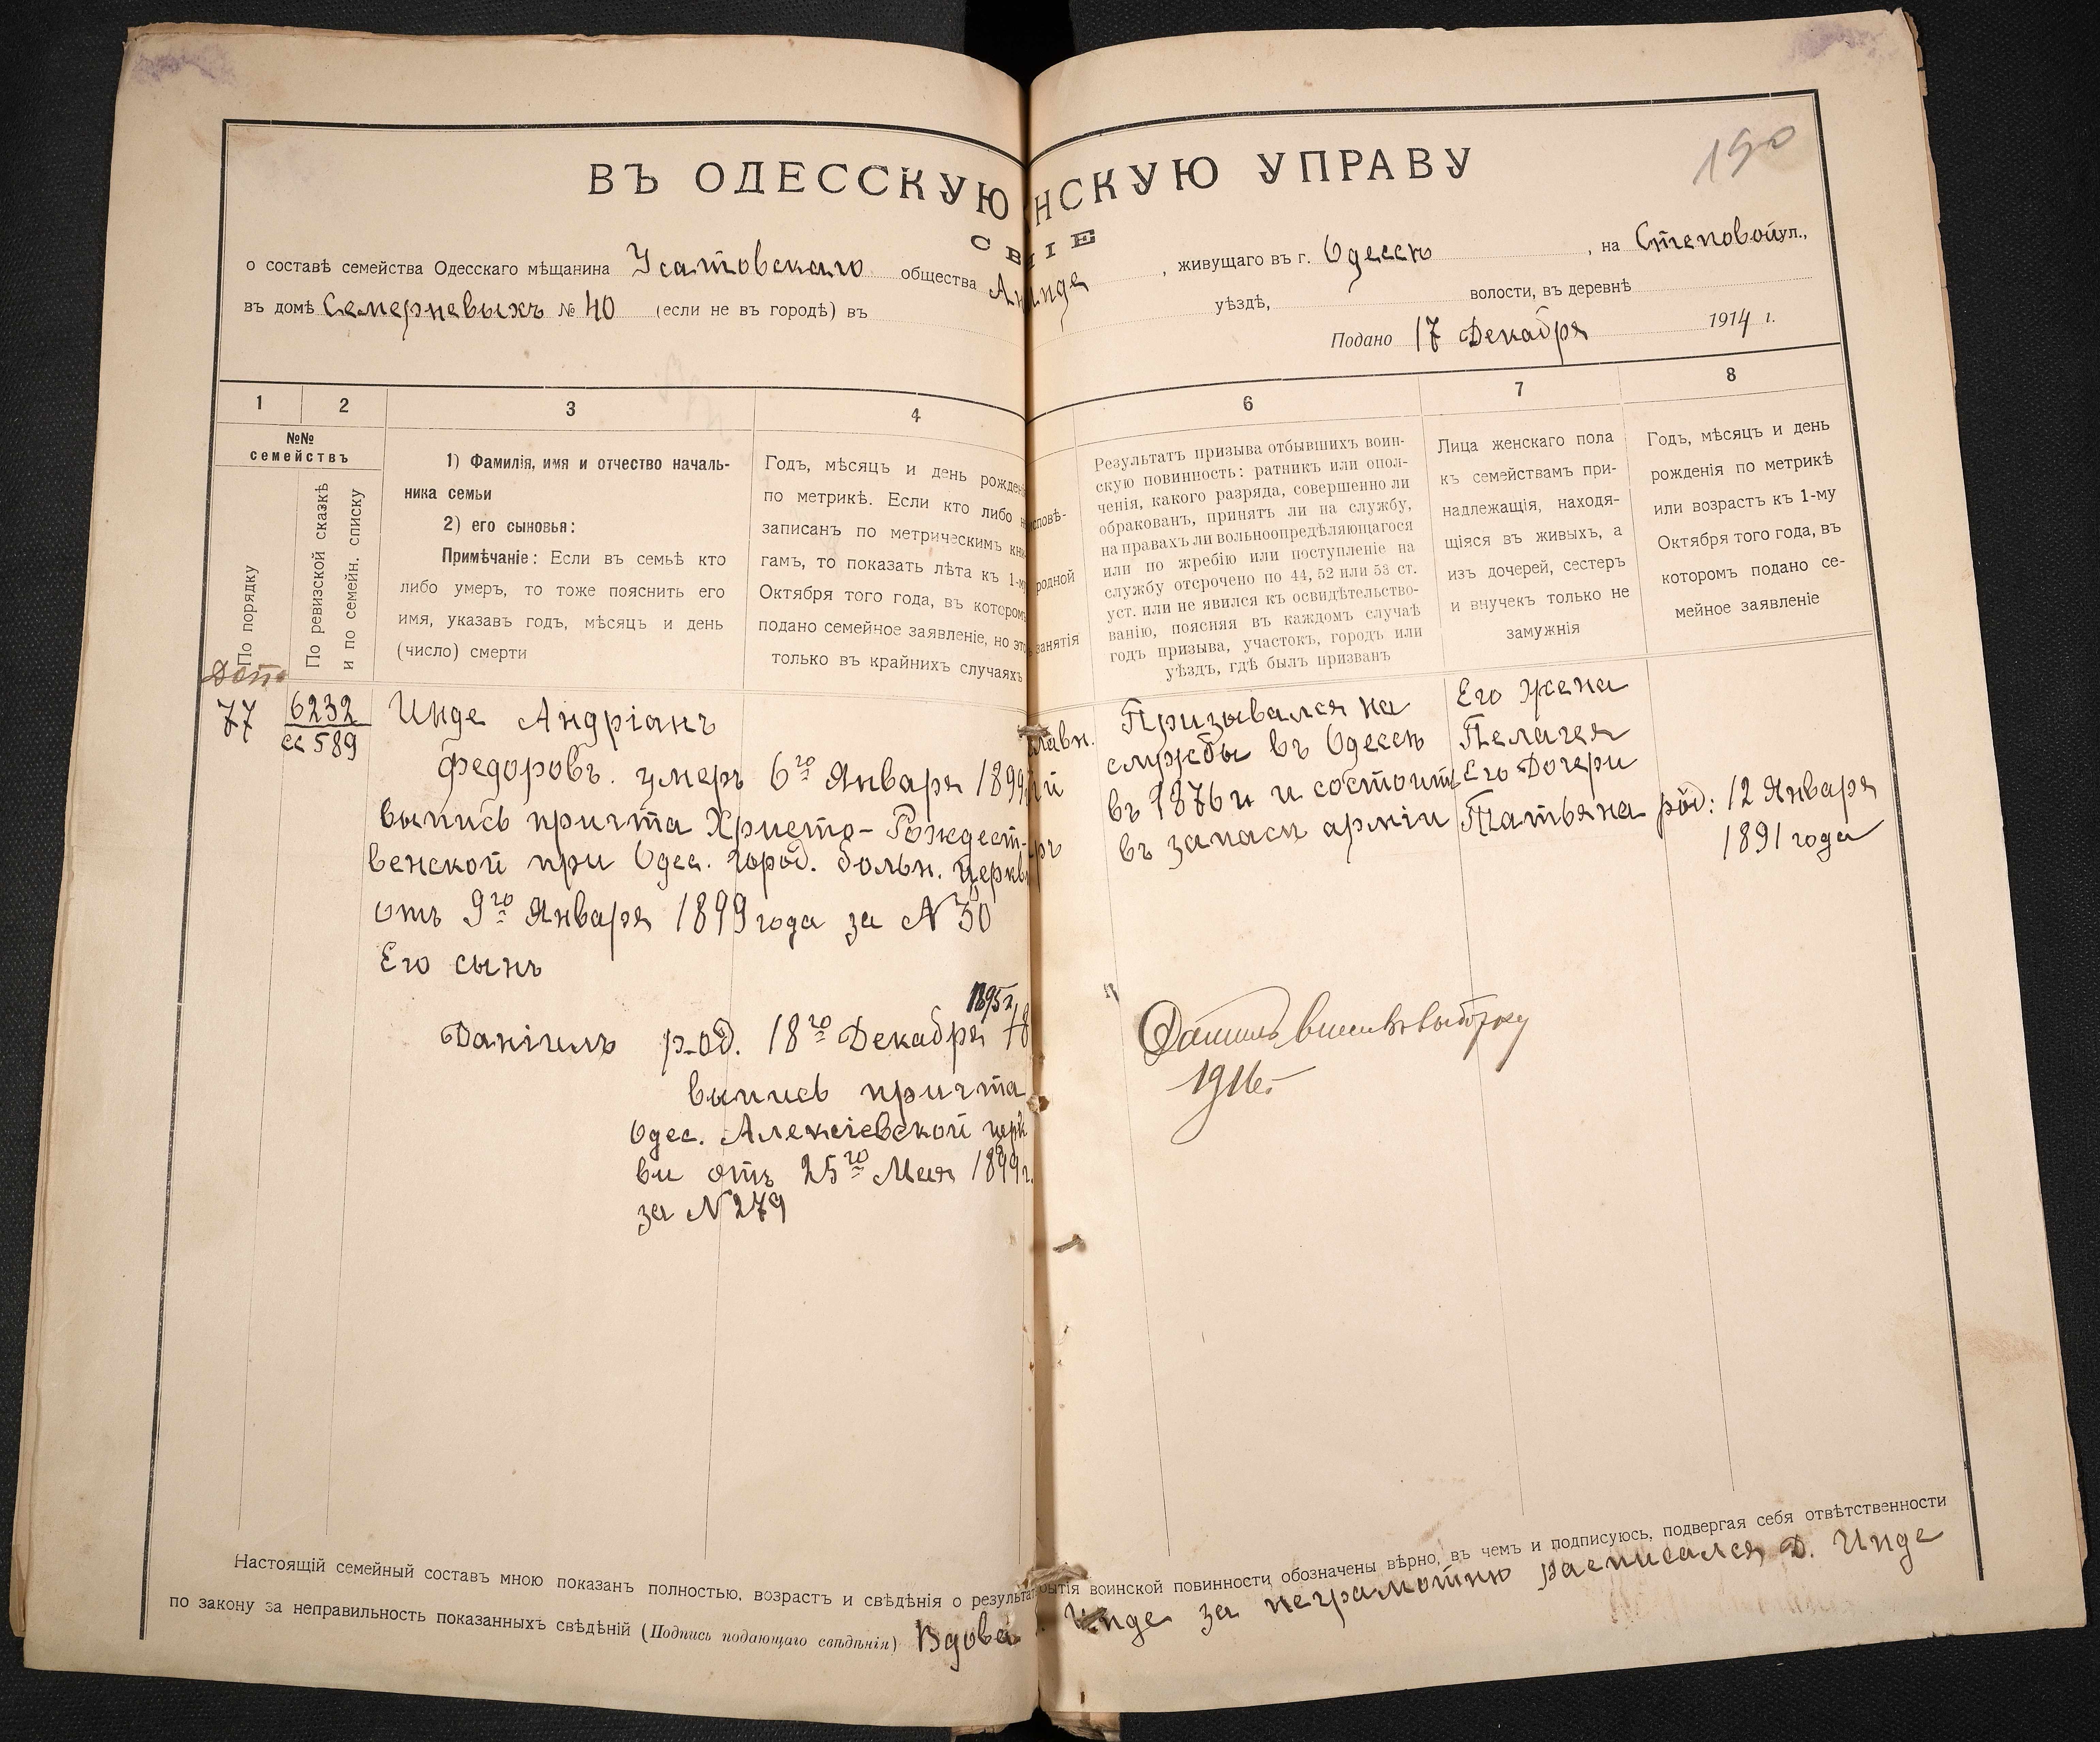 190
ВЪ ОДЕССКУЮ НСКУЮ УПРАВУ
СВ НІЕ
о составѣ семейства Одесскаго мѣщанина Усатовскаго общества Ан Инде, живущаго въ г. Одессѣ, на Степовой ул.,
въ домѣ Семерневыхъ № 40 (если не въ городѣ) въ уѣздѣ, волости, въ деревнѣ
Подано 17 Декабря 1914 г.
1 2 3 4 6 7 8
№№
семействъ
По порядку
По ревизской сказкѣ
и по семейн. списку
1) Фамилія, имя и отчество началь-
ника семьи
2) его сыновья:
Примѣчаніе: Если въ семьѣ кто
либо умеръ, то тоже пояснить его
имя, указавъ годъ, мѣсяцъ и день
(число) смерти
Годъ, мѣсяцъ и день рожден
по метрикѣ. Если кто либо н
записанъ по метрическимъ кни
гамъ, то показать лѣта къ 1-му
Октября того года, въ котором
подано семейное заявленіе, но это
только въ крайнихъ случаяхъ
сповѣ-
родной
занятія
Результатъ призыва отбывшихъ воин-
скую повинность: ратникъ или опол-
ченія, какого разряда, совершенно ли
обракованъ, принятъ ли на службу,
на правахъ ли вольноопредѣляющагося
или по жребію или поступленіе на
службу отсрочено по 44, 52 или 53 ст.
уст. или не явился къ освидѣтельство-
ванію, поясняя въ каждомъ случаѣ
годъ призыва, участокъ, городъ или
уѣздъ, гдѣ былъ призванъ
Лица женскаго пола
къ семействамъ при-
надлежащія, находя-
щіяся въ живыхъ, а
изъ дочерей, сестеръ
и внучекъ только не
замужнія
Годъ, мѣсяцъ и день
рожденія по метрикѣ
или возрастъ къ 1-му
Октября того года, въ
которомъ подано се-
мейное заявленіе
77
6232
сс 589
Инде Андріанъ
Федоровъ. умеръ 6го Января 1899
выпись причта Христо-Рождест-
венской при Одес. город. больн. Церкв
отъ 9го Января 1899 года за N 30
Его сынъ
1895 г.
Даніилъ род. 18го Декабря 18
выпись причта
Одес. Алексіевской церк
ви отъ 25го Мая 1899 г.
за N 279
лавн.
Призывался на
службы въ Одессѣ
въ 1876 г и состоитъ
въ запасѣ арміи
Его жена
Пелагея
Его Дочери
Татьяна род: 12 Января
1891 года
1916 г.
Настоящій семейный составъ мною показанъ полностью, возрастъ и свѣдѣнія о результат бытія воинской повинности обозначены вѣрно, въ чемъ и подписуюсь, подвергая себя отвѣтственности
по закону за неправильность показанныхъ свѣдѣній (Подпись подающаго свѣдѣнія) Вдова Инде за неграмотную расписался Д. Инде